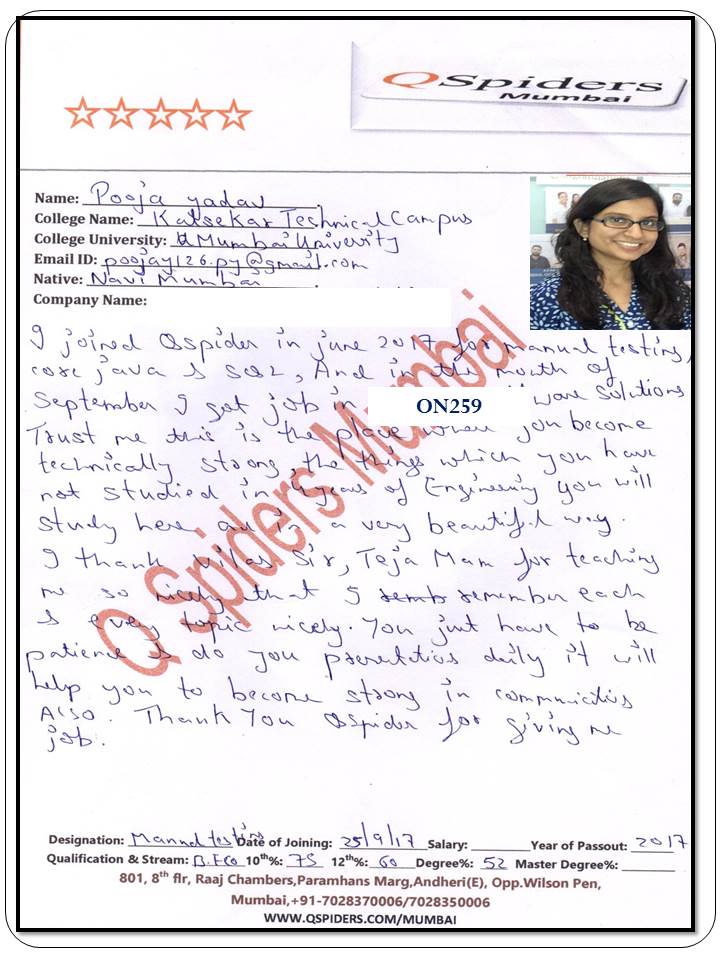 QSpiders
Mumbai
Name: Pooja yadav
College Name: Kalsekar Technical Campus
College University: Mumbai University
Email ID: poojay126.py@gmail.com
Native: Navi Mumbai
Company Name:
I joined Qspider in june 2017 for manual testing,
core java & SQL, And in the month of
September I got job in ON259 ware solutions
Trust me this is the place when you become
technically strong, the things which you have
not studied in 4 years of Engineering you will
study here and in a very beautiful way.
I thank Vilas Sir, Teja Mam for teaching
me so nicely that I remember each
& every topic nicely. You just have to be
patience & do you daily it will
help you to become strong in
Also. Thank You Qspider for giving me
job.
Q Spiders Mumbai
Designation: Manual testing Date of Joining: 25/9/17 Salary: Year of Passout: 2017
Qualification & Stream: 10th%: 75 12th%: 60 Degree%: 52 Master Degree%:
801, 8th flr, Raaj Chambers,Paramhans Marg,Andheri(E), Opp.Wilson Pen,
Mumbai,+91-7028370006/7028350006
WWW.QSPIDERS.COM/MUMBAI